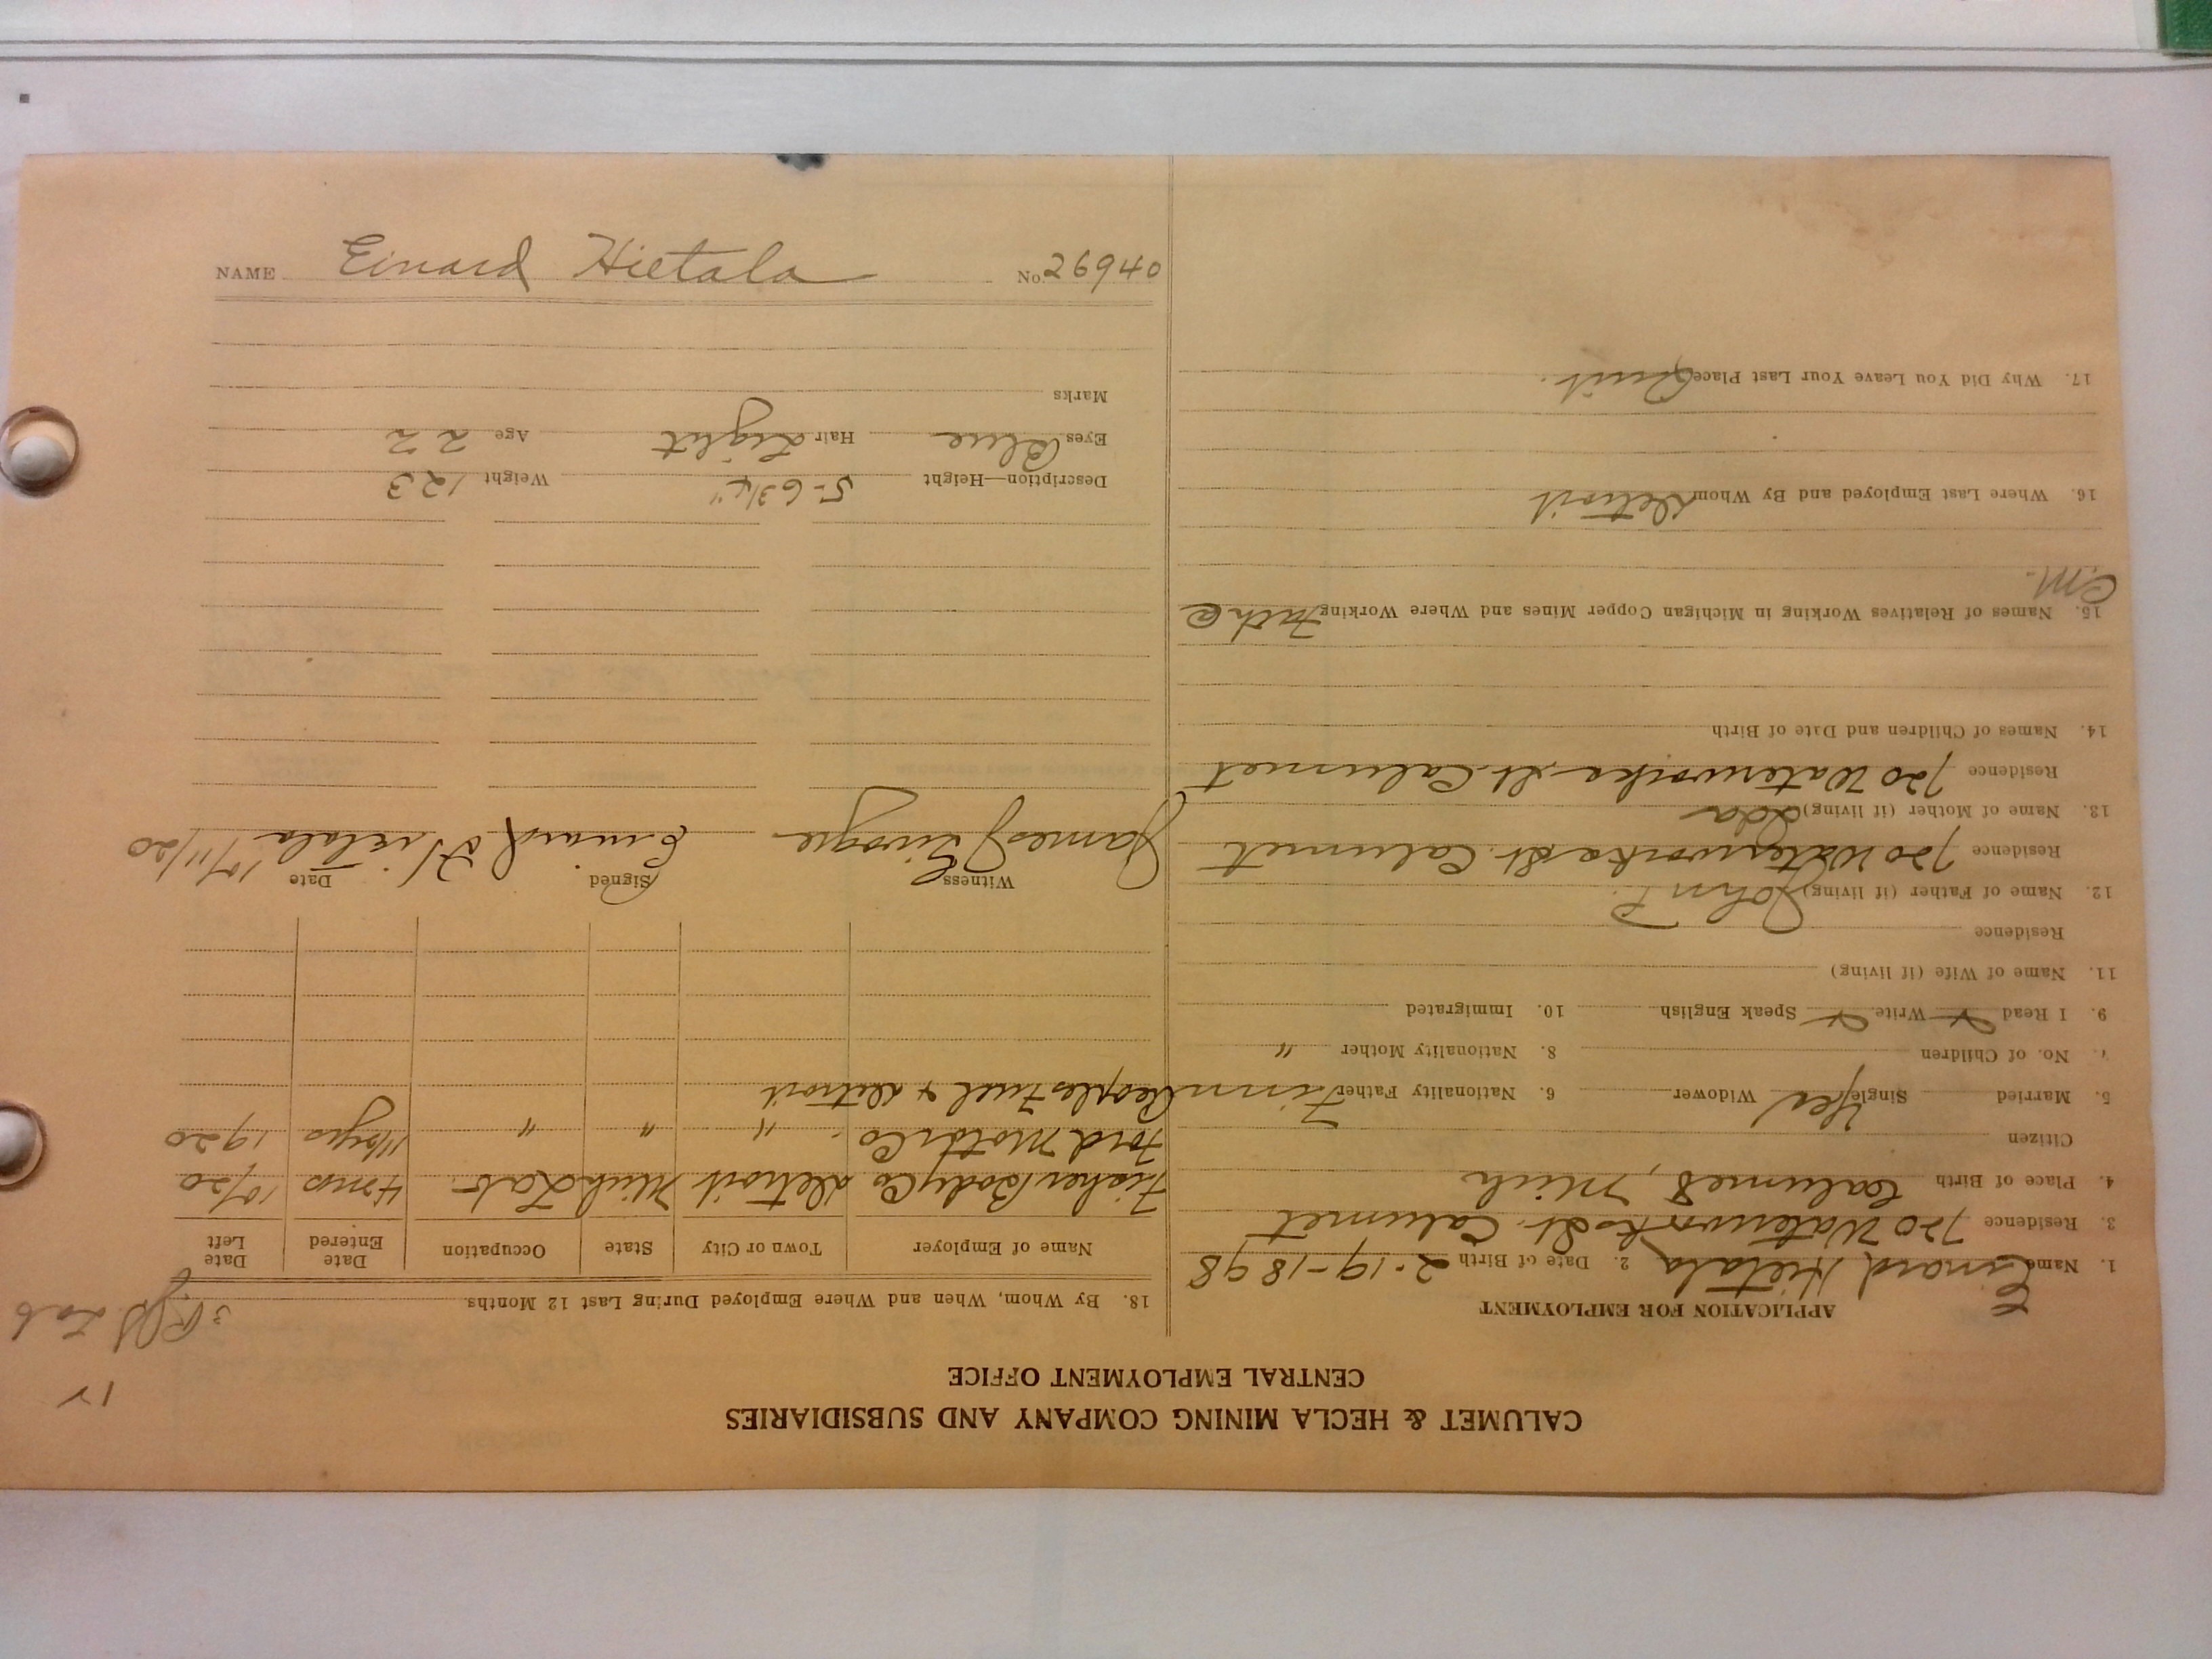 CALUMET & HECLA MINING COMPANY AND SUBSIDIARIES
CENTRAL EMPLOYMENT OFFICE
APPLICATION FOR EMPLOYMENT
1. Name Einard Hietala 2. Date of Birth 2-19-1898
3. Residence 720 Waterworks St. Calumet
4. Place of Birth Calumet, Mich
Citizen
5. Married Single Yes Widower 6. Nationality Father Finn
7. No. of Children 8. Nationality Mother "
9. I Read Write Speak English 10. Immigrated
11. Name of Wife (if living)
Residence
12. Name of Father (if living) John P.
Residence 720 Waterworks St. Calumet
13. Name of Mother (if living) Ida
Residence 720 Waterworks St. Calumet
14. Names of Children and Date of Birth
15. Names of Relatives Working in Michigan Copper Mines and Where Working Fath @
C.M.
16. Where Last Employed and By Whom Detroit
17. Why Did You Leave Your Last Place Quit.
Lab
18. By Whom, When and Where Employed During Last 12 Months
Name of Employer Town or City State Occupation Date Entered Date Left
Fisher Body Co Detroit Mich Lab. 4 mos 10/20
Ford Motor Co. " " " 1920
Peoples Fuel + Detroit
Witness Signed Date
James J Einard Hietala 10/11/20
Description—Height 5-6 3/4" Weight 123
Eyes Blue Hair Light Age 22
Marks
NAME Einard Hietala No. 26940